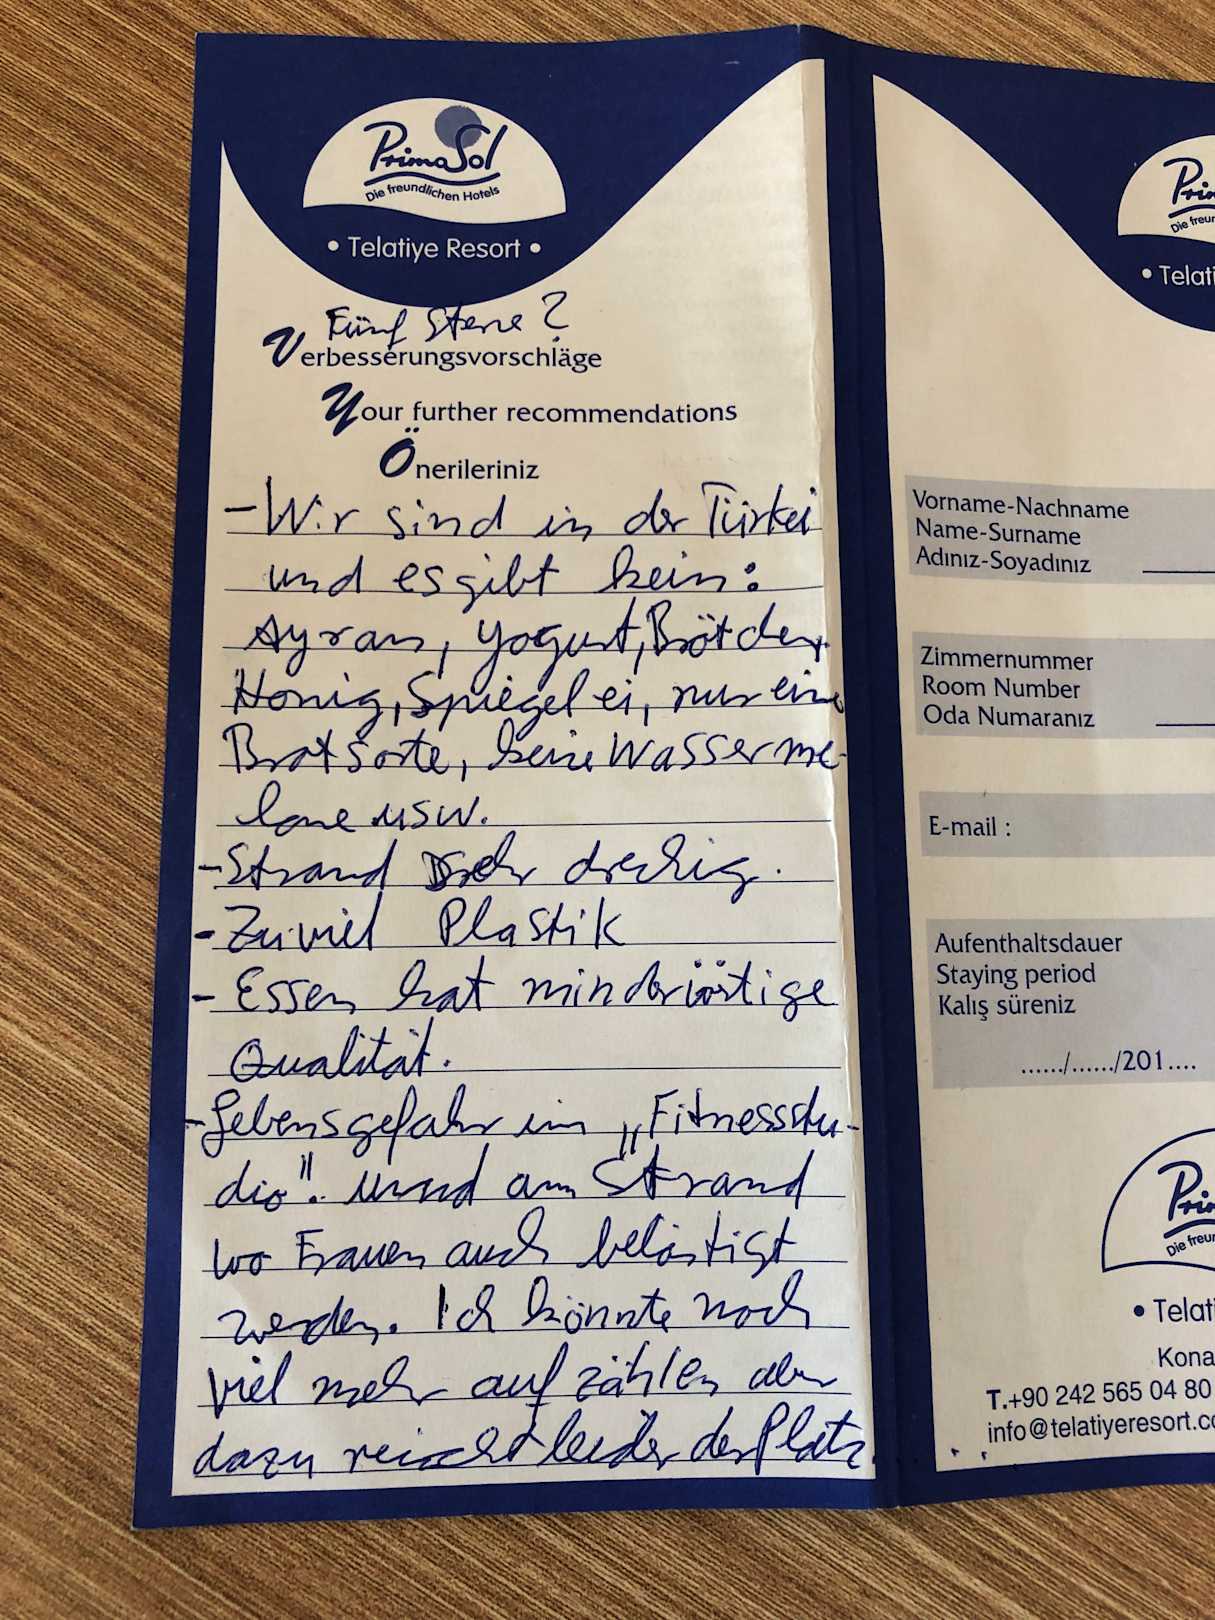 PrimaSol
Die freundlichen Hotels
• Telatiye Resort •
Fünf Sterne?
Verbesserungsvorschläge
Your further recommendations
Önerileriniz
- Wir sind in der Türkei
und es gibt kein:
Ayran, Yogurt, Brötchen
Honig, Spiegelei, nur eine
Brotsorte, keine Wasserme-
lone usw.
- Strand sehr dreckig.
- Zuviel Plastik
- Essen hat minderwärtige
Qualität.
- Lebensgefahr im „Fitnessstu-
dio". und am Strand
wo Frauen auch belästigt
werden. Ich könnte noch
viel mehr aufzählen aber
dazu reicht leider der Platz
Pri
Die freun
• Telati
Vorname-Nachname
Name-Surname
Adınız-Soyadınız
Zimmernummer
Room Number
Oda Numaranız
E-mail :
Aufenthaltsdauer
Staying period
Kalış süreniz
....../....../201....
Pri
Die freun
• Telati
Kona
T.+90 242 565 04 80
info@telatiyeresort.co